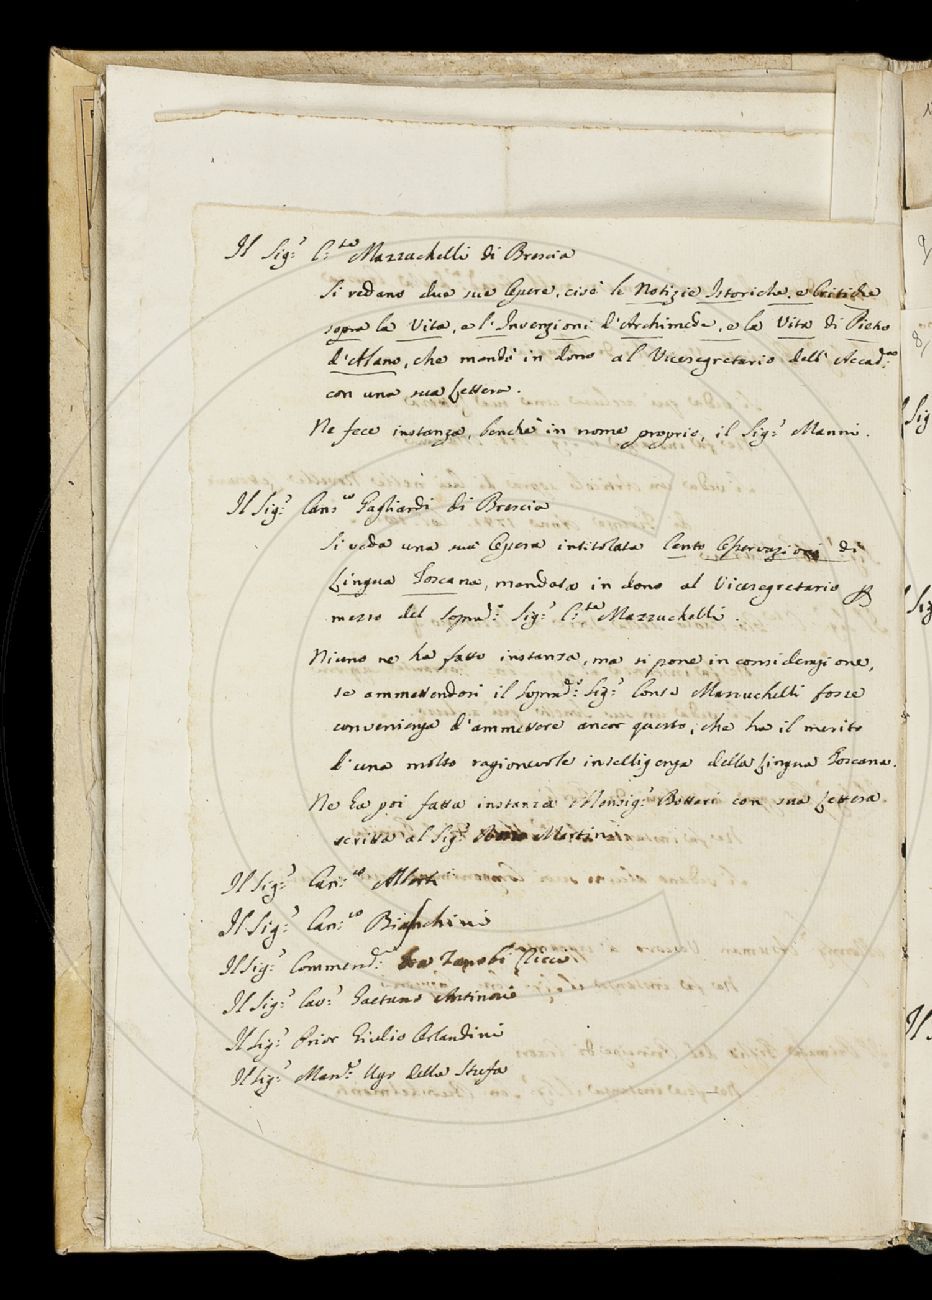 Il Sig.r C.te Mazzuchelli di Brescia
Si vedano due sue Opere, cioè le Notizie Istoriche, e Critiche
sopra la Vita, e l'Invenzioni d'Archimede, e la Vita di Pietro
d'Abano, che mandò in dono al Vicesegretario dell'Accad.a
con una sua Lettera.
Ne fece instanza, benchè in nome proprio, il Sig.r Manni.
Il Sig.r Can.co Gagliardi di Brescia
Si veda una sua Opera intitolata Cento Osservazioni di
Lingua Toscana, mandata in dono al Vicesegretario
mezzo del soprad.o Sig.r C.te Mazzuchelli.
Niuno ne ha fatto instanza, ma si pone in considerazione,
se ammettendosi il Soprad.o Sig.r Conte Mazzuchelli fosse
convenienza d'ammettere ancor questo, che ha il merito
d'una molto ragionevole intelligenza della Lingua Toscana.
Ne ha poi fatta instanza Monsig.r Bottari con sua Lettera
scritta al Sig.r Martini
Il Sig.r Can.co Alberti
Il Sig.r Can.co Bianchini
Il Sig.r Commend.r Zanobi Ricci
Il Sig.r Cav.r Gaetano Antinori
Il Sig.r Prior Giulio Orlandini
Il Sig.r Mar. Ugo della Stufa
Il
Sig
Sig